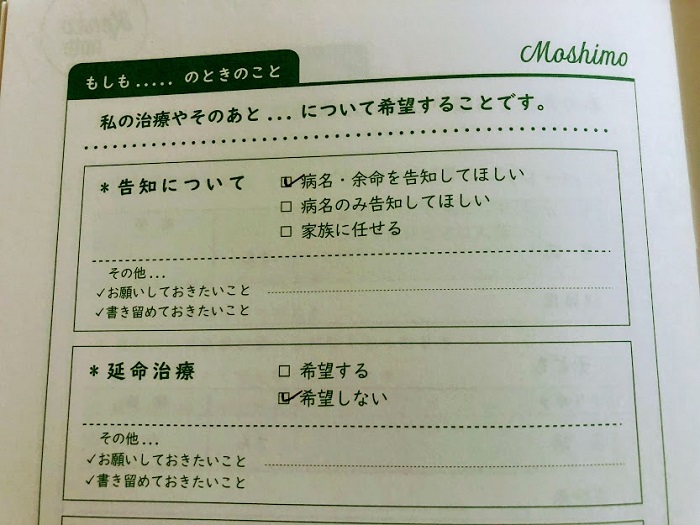 Moshimo
もしも..... のときのこと
私の治療やそのあと...について希望することです。
*告知について
☑病名・余命を告知してほしい
□ 病名のみ告知してほしい
□ 家族に任せる
その他...
✓お願いしておきたいこと
✓書き留めておきたいこと
*延命治療
□ 希望する
☑希望しない
その他...
✓お願いしておきたいこと
✓書き留めておきたいこと